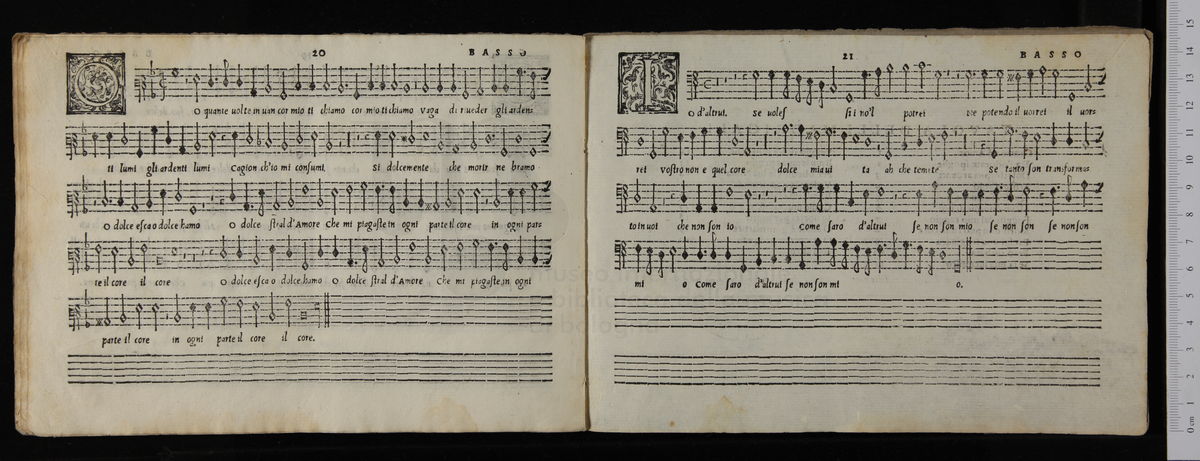 20 BASSO
O quante uolte in uan cor mio ti chiamo cor mio ti chiamo vaga di riueder gli arden=
ti lumi gli ardenti lumi Cagion ch'io mi consumi. Si dolcemente che morir ne bramo
O dolce esca o dolce hamo O dolce stral d'Amore Che mi piagaste in ogni parte il core in ogni par=
te il core il core O dolce esca o dolce hamo O dolce stral d'Amore Che mi piagaste in ogni
parte il core in ogni parte il core il core.
21 BASSO
IO d'altrui. Se uoles si i no'l potrei ne potendo il uorrei il uor=
rei vostro non e quel core dolce mia ui ta ah che temete Se tanto son transforma=
to in uoi che non son io Come saro d'altrui se non son mio se non son se non son
mi o Come saro d'altrui se non son mi o.
museo
biblio
bologna
0 cm 1 2 3 4 5 6 7 8 9 10 11 12 13 14 15